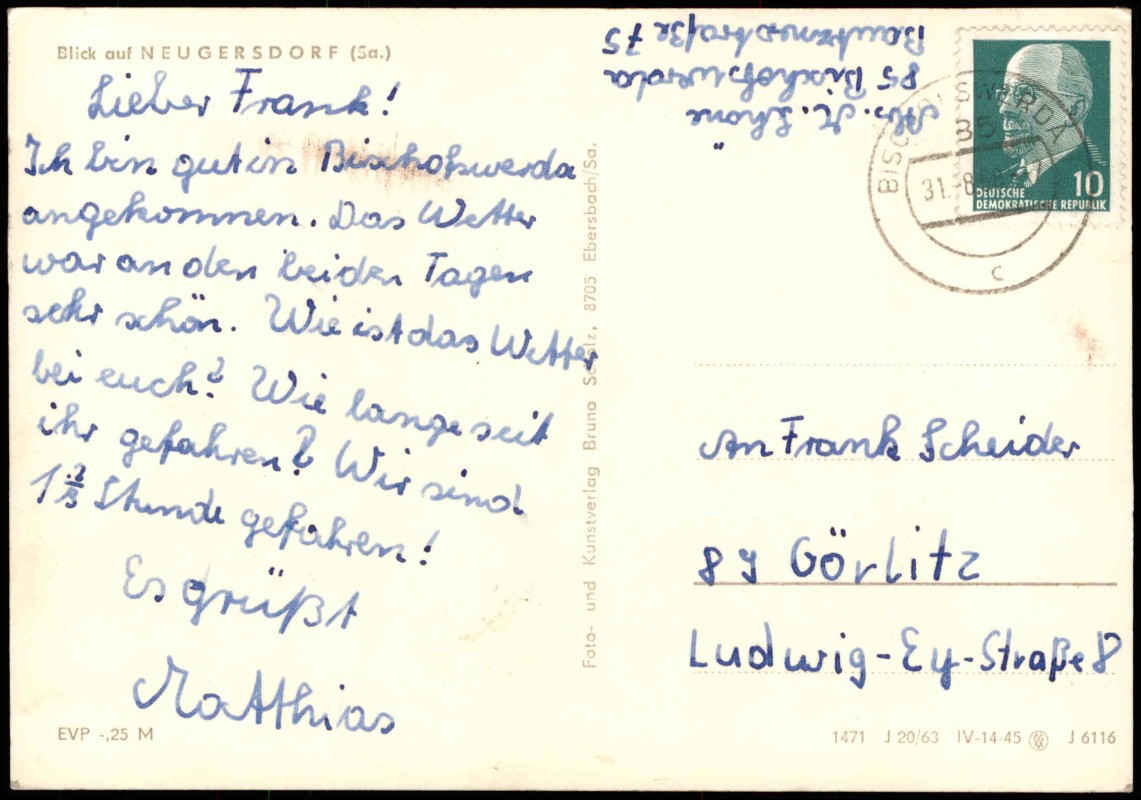 Blick auf NEUGERSDORF (Sa.)
Lieber Frank!
Ich bin gut in Bischofswerda
angekommen. Das Wetter
war an den beiden Tagen
sehr schön. Wie ist das Wetter
bei euch? Wie lange seit
ihr gefahren? Wir sind
1 2/3 Stunde gefahren!
Es grüßt
Matthias
EVP -,25 M
Foto- und Kunstverlag Bruno Scholz, 8705 Ebersbach/Sa.
Abs. M. Schöne
85 Bischofswerda
Bautznerstraße 75
BISCHOFSWERDA
85
31.-8.
c
10
DEUTSCHE
DEMOKRATISCHE REPUBLIK
An Frank Scheider
89 Görlitz
Ludwig-Ey-Straße 8
1471 J 20/63 IV-14-45 J 6116